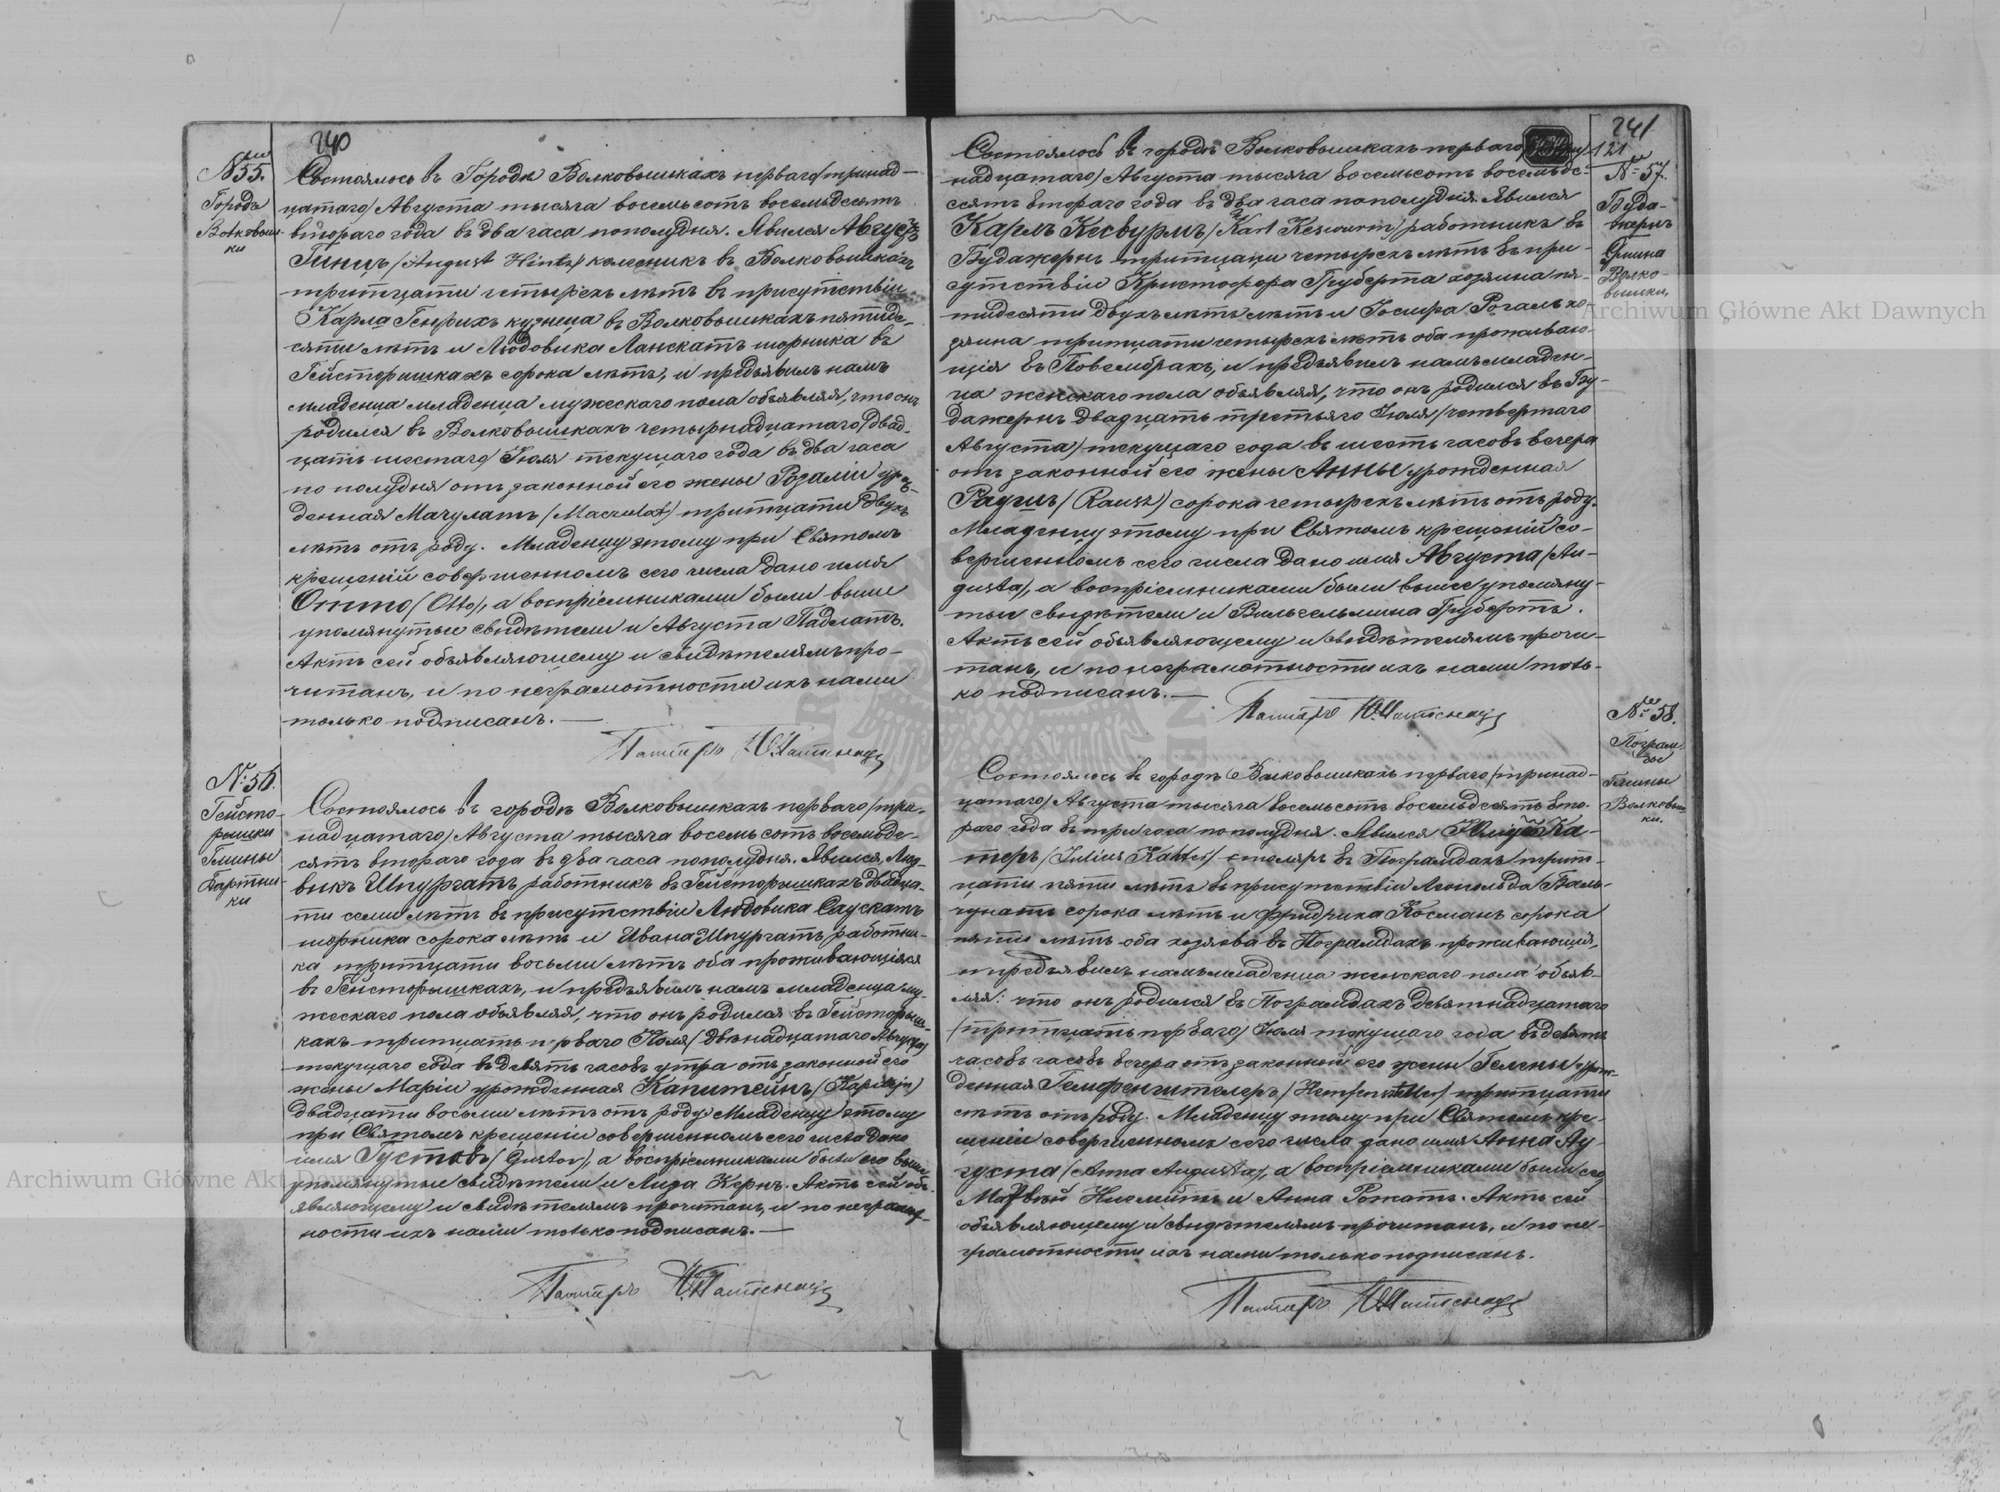 240
№ 55.
Городъ
Волковыш-
ки
Состоялось въ Городѣ Волковышкахъ перваго/тринад-
цатаго/Августа тысяча восемьсотъ восемьдесятъ
втораго года въ два часа пополудня. Явился Августъ
Гинцъ/August Hintz/колесникъ въ Волковышкахъ
тритцати четырехъ лѣтъ въ присутствіи
Карла Генрихъ кузнеца въ Волковышкахъ пятиде-
сяти лѣтъ и Людовика Ланскатъ шорника въ
Гейсторишкахъ сорока лѣтъ, и предъявилъ намъ
младенца младенца мужескаго пола объявляя, что онъ
родился въ Волковышкахъ четырнадцатаго/двад-
цать шестаго/Іюля текущаго года въ два часа
по полудня отъ законной его жены Розаліи урож-
денная Мачулатъ/Maczulat/тритцати двухъ
лѣтъ отъ роду. Младенцу этому при Святомъ
крещеніи совершенномъ сего числа дано имя
Отто/Otto/, а воспріемниками были выше
упомянутые свидѣтели и Августа Падлатъ.
Актъ сей объявляющему и свидѣтелямъ про-
читанъ, и по неграмотности ихъ нами
только подписанъ. —
Пасторъ
№ 56.
Гейсто-
ришки
Гмины
Бартни-
ки
Состоялось въ городѣ Волковышкахъ перваго/три-
надцатаго/Августа тысяча восемьсотъ восемьде-
сятъ втораго года въ два часа пополудня. Явился Люд-
викъ Шпургатъ работникъ въ Гейсторышкахъ двадца-
ти семи лѣтъ въ присутствіи Людовика Саускатъ
шорника сорока лѣтъ и Ивана Шпургатъ работни-
ка тритцати восьми лѣтъ оба проживающіеся
въ Гейсторышкахъ, и предъявилъ намъ младенца му-
жескаго пола объявляя, что онъ родился въ Гейсторыш-
кахъ тритцать перваго Іюля/двѣнадцатаго Августа/
текущаго года въ девять часовъ утра отъ законной его
жены Маріи урожденная Капитейнъ
двадцати восьми лѣтъ отъ роду. Младенцу этому
при Святомъ крещеніи совершенномъ сего числа дано
имя Густавъ/Gustav/, а воспріемниками были его выше
упомянутые свидѣтели и Лида Кернъ. Актъ сей объ-
являющему и свидѣтелямъ прочитанъ, и по неграмот-
ности ихъ нами только подписанъ. —
Пасторъ
241
121
№ 57.
Буда-
жеры
Гмина
Волко-
вышки,
Состоялось въ городѣ Волковышкахъ перваго
надцатаго/Августа тысяча восемьсотъ восемьде-
сятъ втораго года въ два часа пополудня. Явился
Карлъ Кесвурмъ/Karl Keswurm/работникъ въ
Будажеръ тритцати четырехъ лѣтъ въ при-
сутствіи Кристофора Груберта хозяина пя-
тидесяти двухъ лѣтъ лѣтъ и Іосифа Рогалъ хо-
зяина тритцати четырехъ лѣтъ оба проживаю-
щія въ Повембракъ, и предъявилъ намъ младен-
ца женскаго пола объявляя, что онъ родился въ Бу-
дажеръ двадцать третьяго Іюля/четвертаго
Августа/текущаго года въ шесть часовъ вечера
отъ законной его жены Анны урожденная
Раушъ/Rausz/сорока четырехъ лѣтъ отъ роду.
Младенцу этому при Святомъ крещеніи со-
вершенномъ сего числа дано имя Августа/Au-
gusta/, а воспріемниками были выше упомяну-
тые свидѣтели и Вильгельмина Грубертъ.
Актъ сей объявляющему и свидѣтелямъ прочи-
танъ, и по неграмотности ихъ нами толь-
ко подписанъ. —
Пасторъ
№ 58.
Пограм-
ды
Гмины
Волковыш-
ки.
Состоялось въ городѣ Волковышкахъ перваго/тринад-
цатаго/Августа тысяча восемьсотъ восемьдесятъ вто-
раго года въ три часа пополудня. Явился Юліусъ Ка-
теръ/Julius столяръ въ Пограмдахъ трит-
цати пяти лѣтъ въ присутствіи Леопольда Баль-
чунатъ сорока лѣтъ и Фридриха Косманъ сорока
пяти лѣтъ оба хозяева въ Пограмдахъ проживающія,
и предъявилъ намъ младенца женскаго пола объяв-
ляя: что онъ родился въ Пограмдахъ девятнадцатаго
/тритцать перваго/Іюля текущаго года въ девять
часовъ часовъ вечера отъ законной его жены Гелены урож-
денная Гемфенштелеръ тритцати
лѣтъ отъ роду. Младенцу этому при Святомъ кре-
щеніи совершенномъ сего числа дано имя Анна Ау-
густа/Anna Augusta/, а воспріемниками были его
Матвѣй и Анна Рожатъ. Актъ сей
объявляющему и свидѣтелямъ прочитанъ, и по не-
грамотности ихъ нами только подписанъ.
Пасторъ
Archiwum Główne Akt Dawnych
Archiwum Główne Akt Dawnych